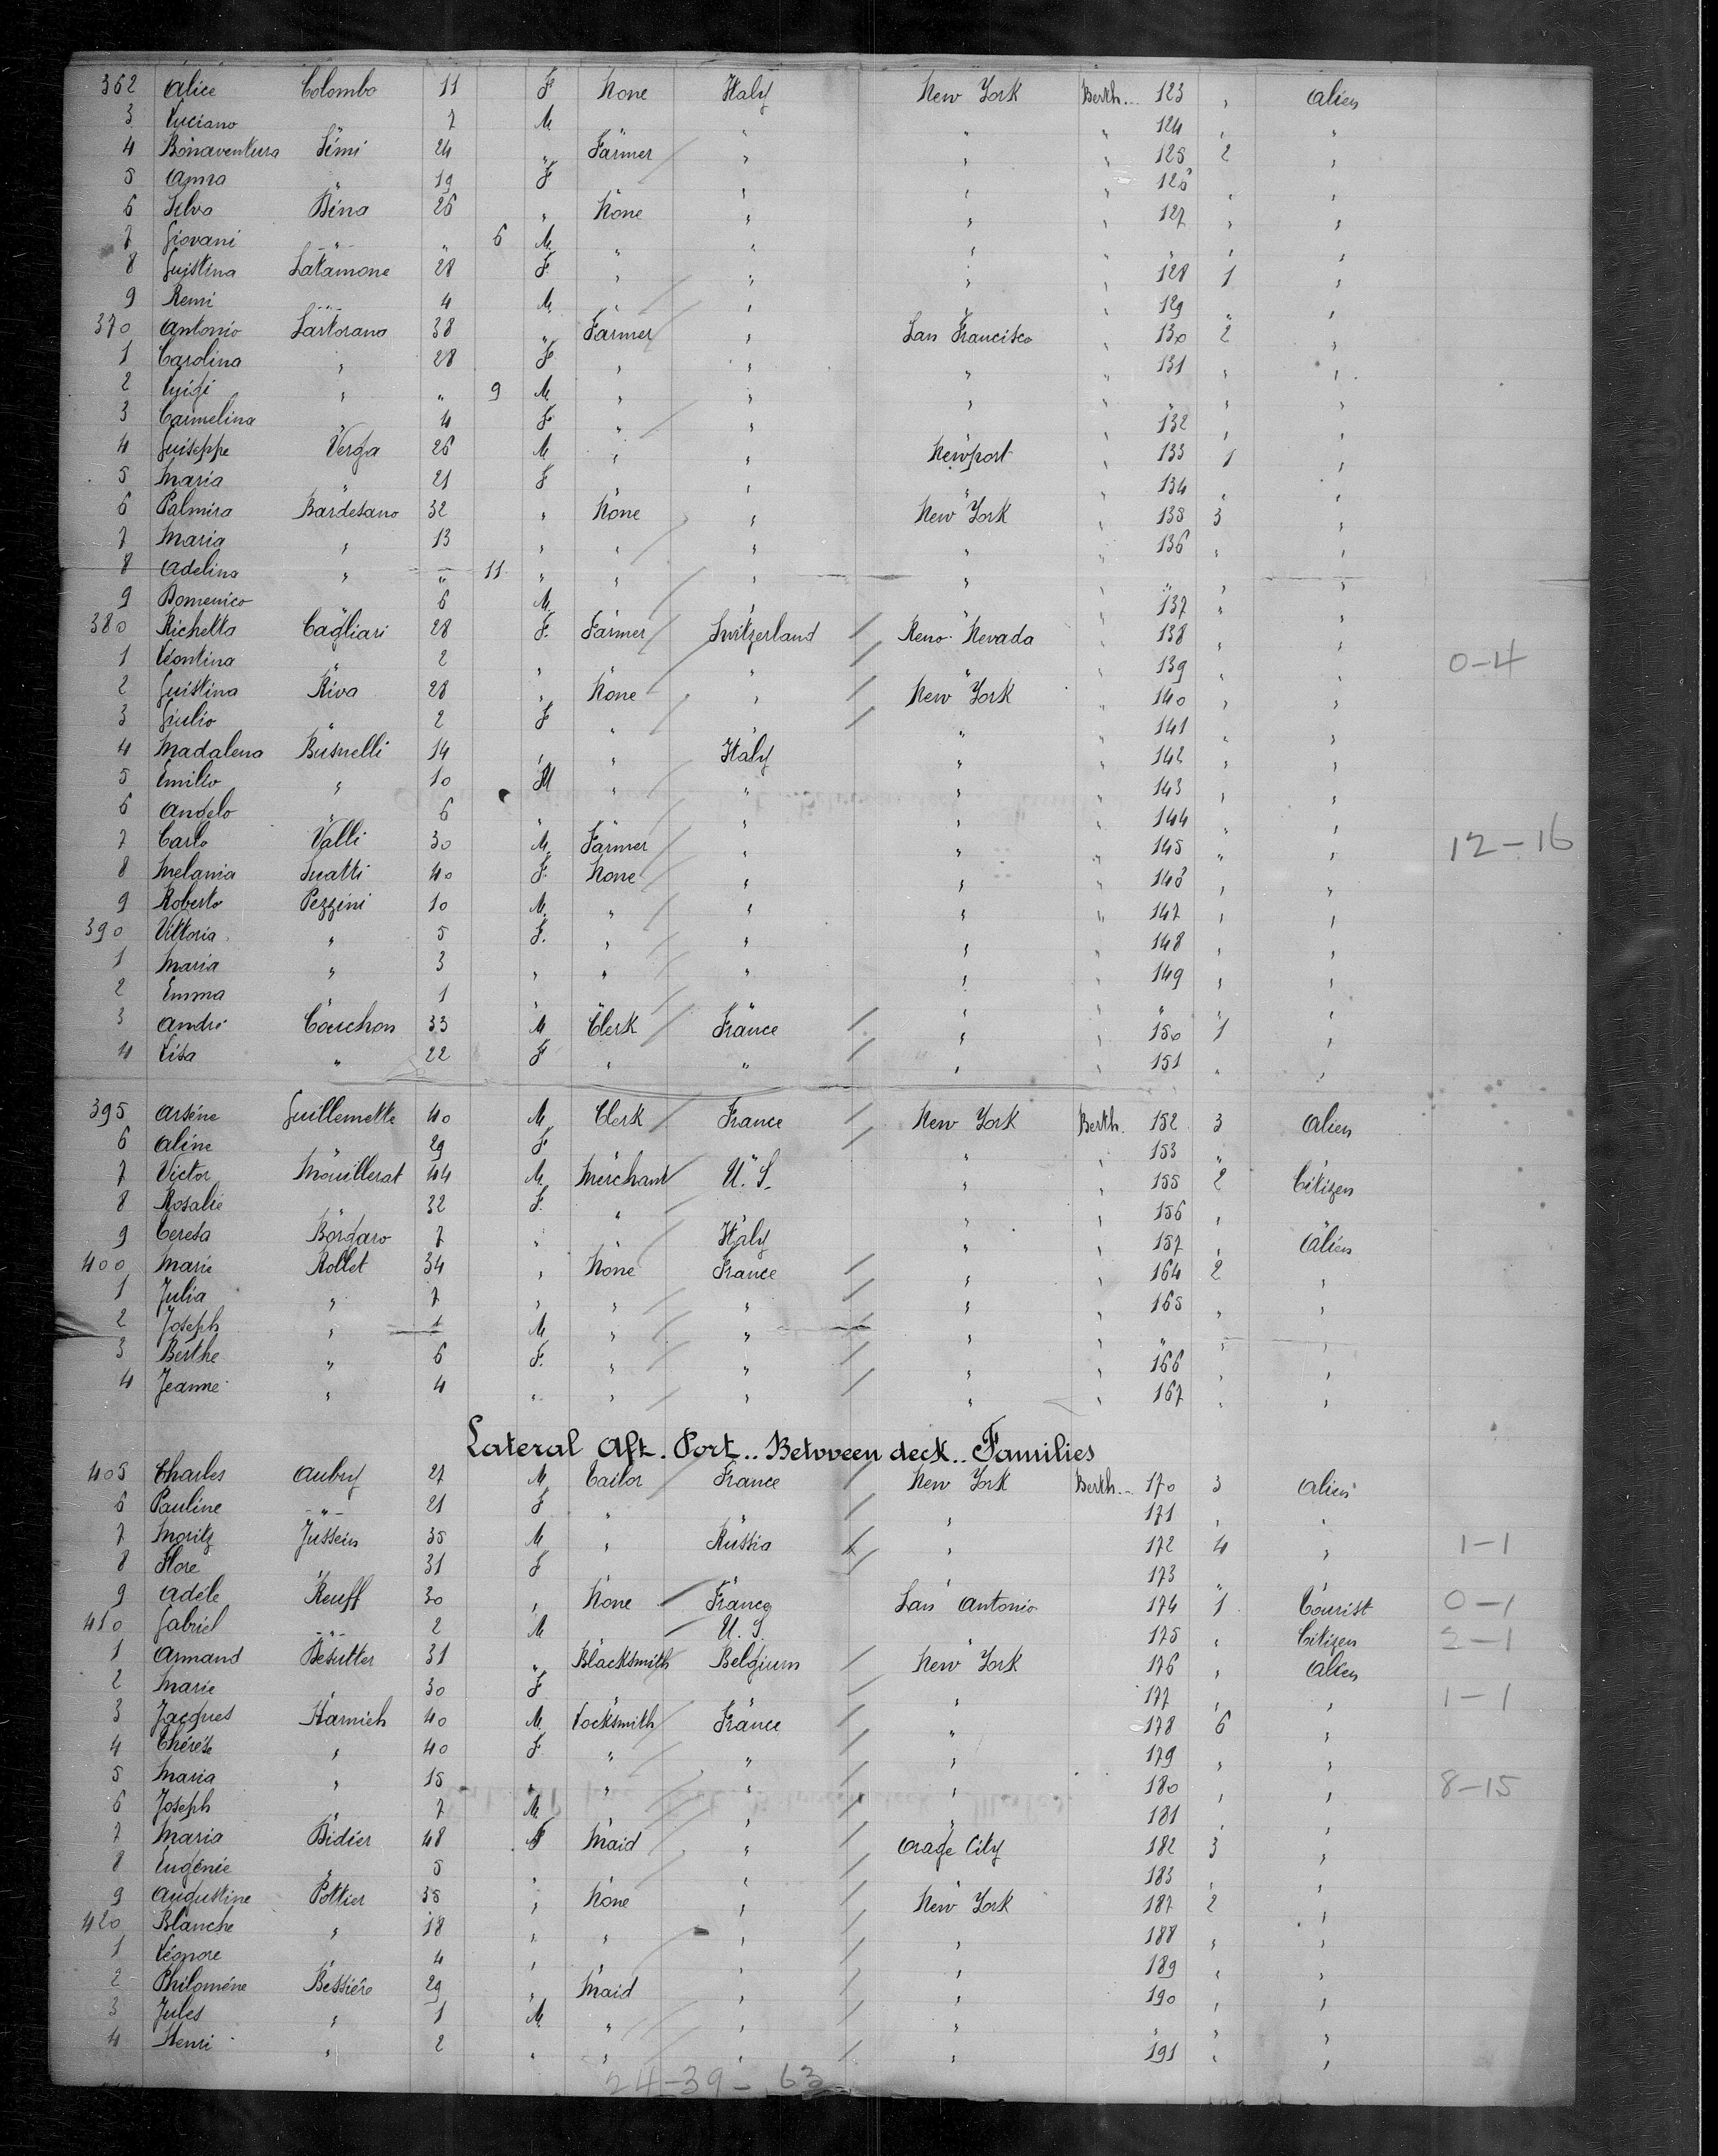 362 Alice Colombo 11 F None Italy New York Berth... 123 " Alien
3 Luciano " 7 M " " " " 124 " "
4 Bonaventura Simi 24 " Farmer " " " 125 2 "
5 Anna " 19 F " " " " 126 " "
6 Silva Bina 26 " None " " " 127 " "
7 Giovani " " 6 M " " " " " " "
8 Guistina Latamone 28 F " " " " 128 1 "
9 Remi " 4 M " " " " 129 " "
370 Antonio Sartorano 38 " Farmer " San Francisco " 130 2 "
1 Carolina " 28 F " " " " 131 " "
2 Luigi " " 9 M " " " " " " "
3 Carmelina " 4 F " " " " 132 " "
4 Guiseppe Verga 26 M " " Newport " 133 1 "
5 Maria " 21 F " " " " 134 " "
6 Palmira Bardesano 32 " None " New York " 135 3 "
7 Maria " 13 " " " " " 136 " "
8 Adelina " " 11 " " " " " " " "
9 Domenico " 6 M " " " " 137 " "
380 Richetta Cagliari 28 F. Farmer Switzerland Reno Nevada " 138 " "
1 Léontina " 2 " " " " " 139 " " 0-4
2 Guistina Riva 28 " None " New York " 140 " "
3 Giulio " 2 F " " " " 141 " "
4 Madalena Busnelli 14 " " Italy " " 142 " "
5 Emilio " 10 M " " " " 143 " "
6 Angelo " 6 " " " " " 144 " "
7 Carlo Valli 30 M. Farmer " " " 145 " " 12-16
8 Melania Suatti 40 F. None " " " 146 " "
9 Roberto Pezzini 10 M. " " " " 147 " "
390 Vittoria " 5 F. " " " " 148 " "
1 Maria " 3 " " " " " 149 " "
2 Emma " 1 " " " " " " " "
3 André Couchon 33 M Clerk France " " 150 1 "
4 Lisa " 22 F " " " " 151 " "
395 Arsène Guillemette 40 M Clerk France New York Berth. 152 3 Alien
6 Aline " 29 F " " " " 153 " "
7 Victor Mouillerat 44 M Merchant U.S. " " 155 2 Citizen
8 Rosalie " 32 F. " " " " 156 " "
9 Ceresa Bordaro 7 " " Italy " " 157 " Alien
400 Marie Rollet 34 " None France " " 164 2 "
1 Julia " 7 " " " " " 165 " "
2 Joseph " 1 M " " " " " " "
3 Berthe " 6 F. " " " " 166 " "
4 Jeanne " 4 " " " " " 167 " "
Lateral Aft. Port.. Between deck.. Families
405 Charles Aubry 27 M Tailor France New York Berth... 170 3 Alien
6 Pauline " 21 F " " " 171 " "
7 Moritz Jussein 35 M " Russia " 172 4 " 1-1
8 Flore " 31 F " " " 173 " "
9 Adèle Reuff 30 " None France San Antonio 174 1 Tourist 0-1
410 Gabriel " 2 M U.S. " 175 " Citizen 2-1
1 Armand Besutter 31 " Blacksmith Belgium New York 176 " Alien
2 Marie " 30 F " " " 177 " " 1-1
3 Jacques Harnich 40 M Locksmith France " 178 6 "
4 Thérèse " 40 F " " " 179 " "
5 Maria " 15 " " " " 180 " " 8-15
6 Joseph " 7 M " " " 181 " "
7 Maria Didier 48 F Maid " Orage City 182 3 "
8 Eugénie " 5 " " " " 183 " "
9 Augustine Pottier 35 " None " New York 187 2 "
420 Blanche " 18 " " " " 188 " "
1 Léonore " 4 " " " " 189 " "
2 Philomène Bessière 29 " Maid " " 190 " "
3 Jules " 1 M " " " " " "
4 Henri " 2 " " " " 191 " "
24-39-63